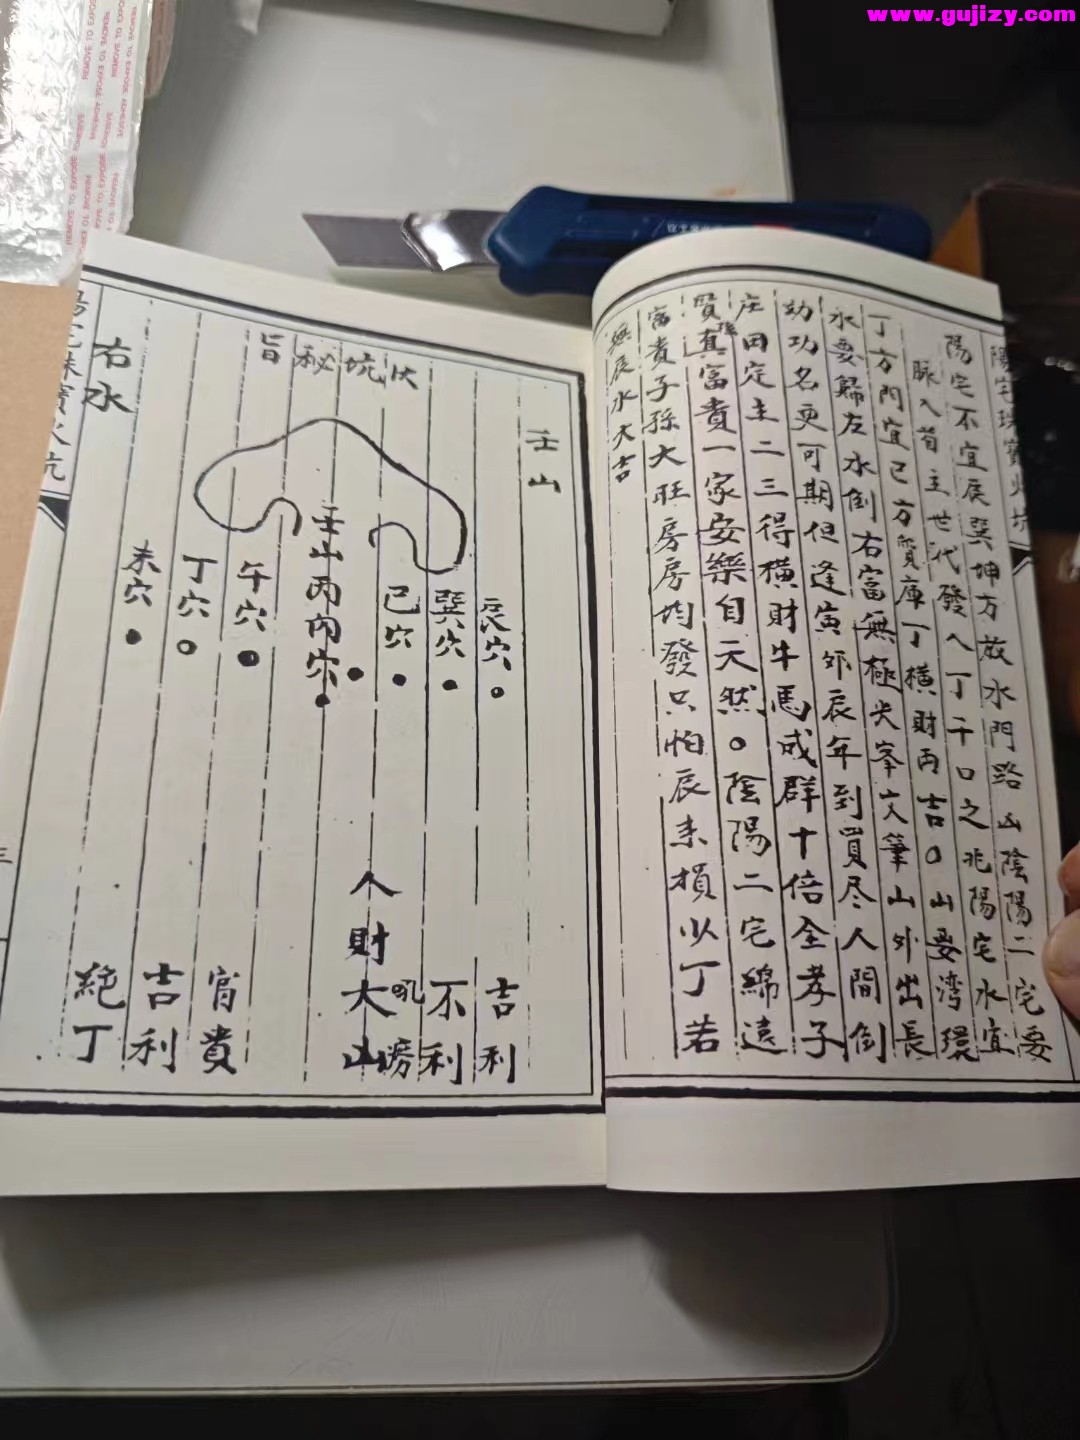 www.gujizy.com
REMOVE TO EXPOSE ADHESIVE
陽宅不宜辰巽坤方放水門路山陰陽二宅要
脉入首主世代發人丁千口之兆陽宅水宜
丁方門宜巳方賀庫丁橫財丙吉○山要湾環
水要歸左水倒右富無極尖峯文筆山外出長
幼功名更可期但逢寅卯辰年到買尽人間倒
庄田定主二三得橫財牛馬成群十倍全孝子
賢真富貴一家安樂自天然○陰陽二宅綿遠
富貴子孫大旺房房均發只怕辰未損少丁若
無辰水大吉
壬山
火坑秘旨
辰穴 吉利
巽穴 不利
巳穴
壬山丙丙穴
人財大
午穴 富貴
丁穴 吉利
未穴 絕丁
右水
三